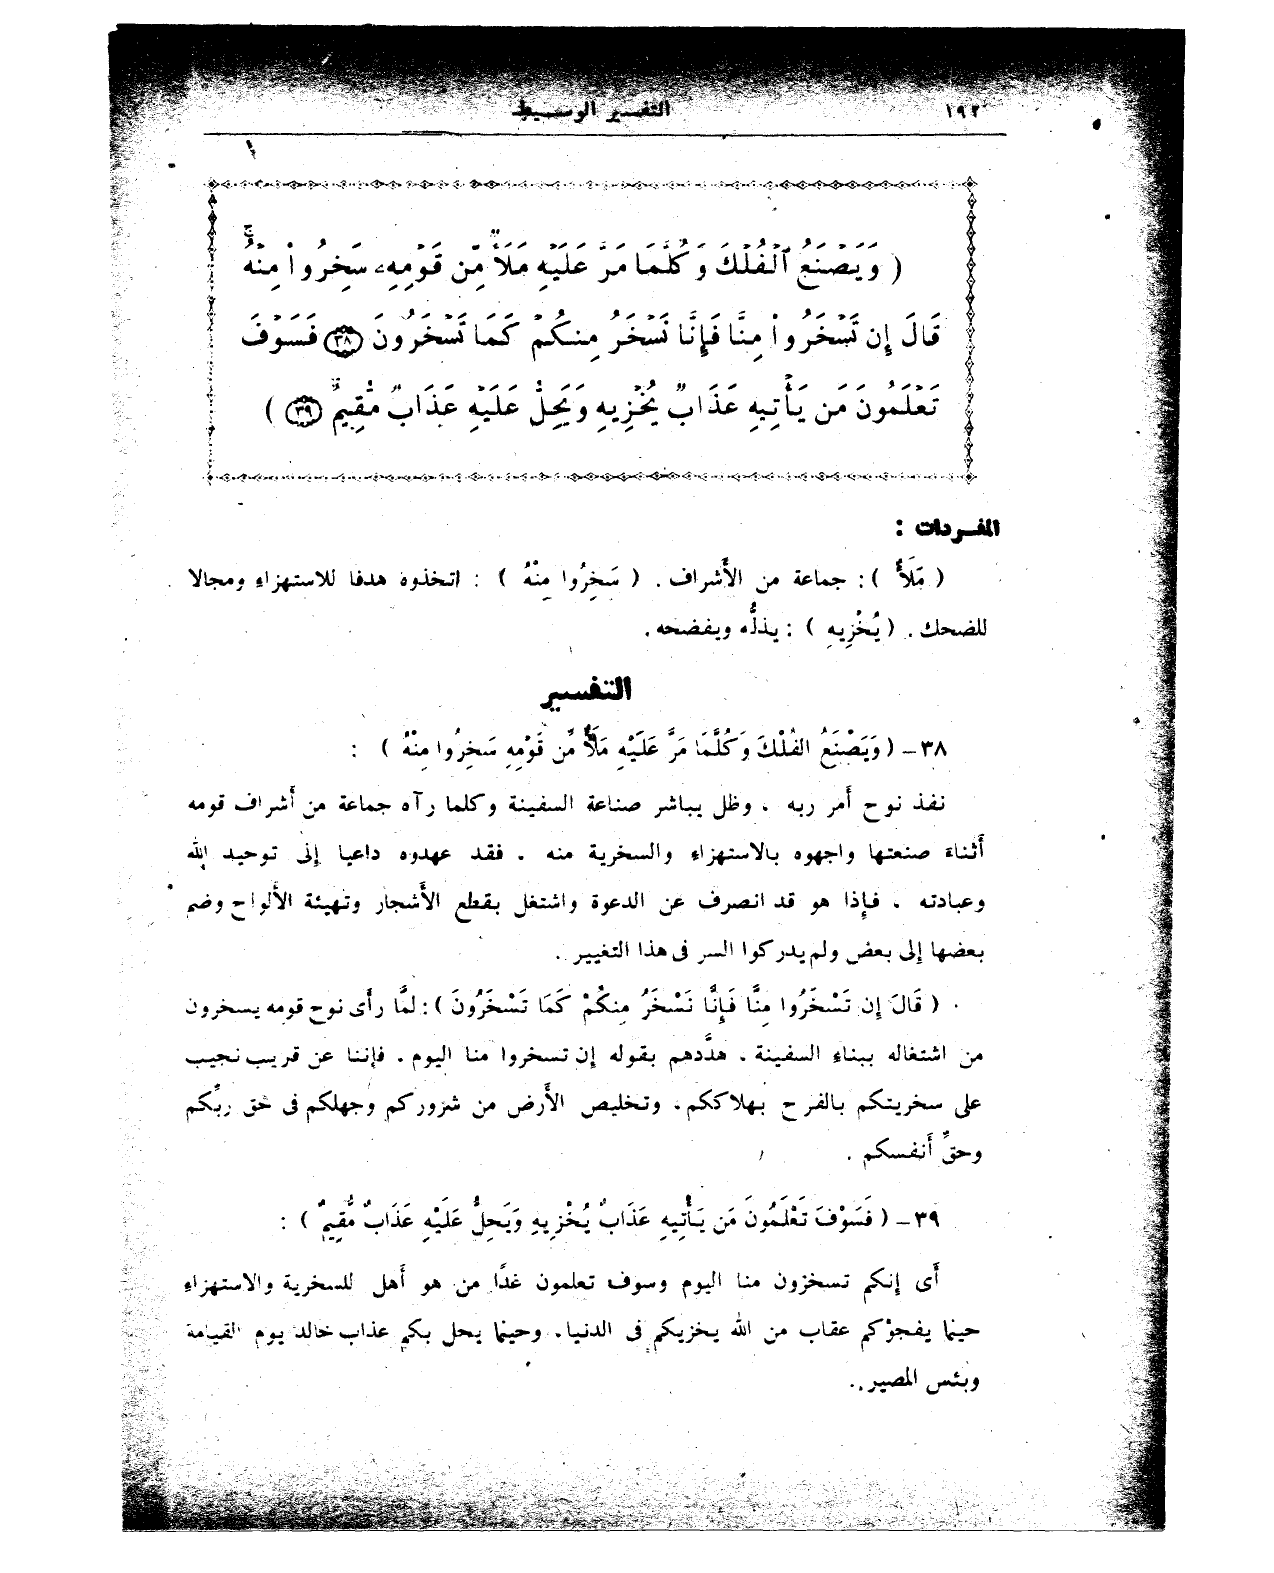 ١٩٢ التفسير الوسيط
( وَيَصْنَعُ ٱلْفُلْكَ وَكُلَّمَا مَرَّ عَلَيْهِ مَلَأٌ مِّن قَوْمِهِۦ سَخِرُوا۟ مِنْهُ ۚ
قَالَ إِن تَسْخَرُوا۟ مِنَّا فَإِنَّا نَسْخَرُ مِنكُمْ كَمَا تَسْخَرُونَ ٣٨ فَسَوْفَ
تَعْلَمُونَ مَن يَأْتِيهِ عَذَابٌ يُخْزِيهِ وَيَحِلُّ عَلَيْهِ عَذَابٌ مُّقِيمٌ ٣٩ )
المفردات :
( مَلَأٌ ) : جماعة من الأشراف . ( سَخِرُوا مِنْهُ ) : اتخذوه هدفا للاستهزاء ومجالا
للضحك . ( يُخْزِيهِ ) : يذلُّه ويفضحه .
التفسير
٣٨ – ( وَيَصْنَعُ الفُلْكَ وَكُلَّمَا مَرَّ عَلَيْهِ مَلَأٌ مِّن قَوْمِهِ سَخِرُوا مِنْهُ ) :
نفذ نوح أمر ربه . وظل يباشر صناعة السفينة وكلما رآه جماعة من أشراف قومه
أثناء صنعتها واجهوه بالاستهزاء والسخرية منه . فقد عهدوه داعيا إلى توحيد الله
وعبادته . فإذا هو قد انصرف عن الدعوة واشتغل بقطع الأشجار وتهيئة الألواح وضم
بعضها إلى بعض ولم يدركوا السر فى هذا التغيير .
( قَالَ إِن تَسْخَرُوا مِنَّا فَإِنَّا نَسْخَرُ مِنكُمْ كَمَا تَسْخَرُونَ ) : لمَّا رأى نوح قومه يسخرون
من اشتغاله ببناء السفينة . هدَّدهم بقوله إن تسخروا منا اليوم . فإننا عن قريب نجيب
على سخريتكم بالفرح بهلاككم . وتخليص الأرض من شروركم وجهلكم فى حق ربِّكم
وحقِّ أنفسكم .
٣٩ – ( فَسَوْفَ تَعْلَمُونَ مَن يَأْتِيهِ عَذَابٌ يُخْزِيهِ وَيَحِلُّ عَلَيْهِ عَذَابٌ مُّقِيمٌ ) :
أى إنكم تسخرون منا اليوم وسوف تعلمون غدًا من هو أهل للسخرية والاستهزاء
حينما يفجؤكم عقاب من الله يخزيكم فى الدنيا . وحينما يحل بكم عذاب خالد يوم القيامة
وبئس المصير .